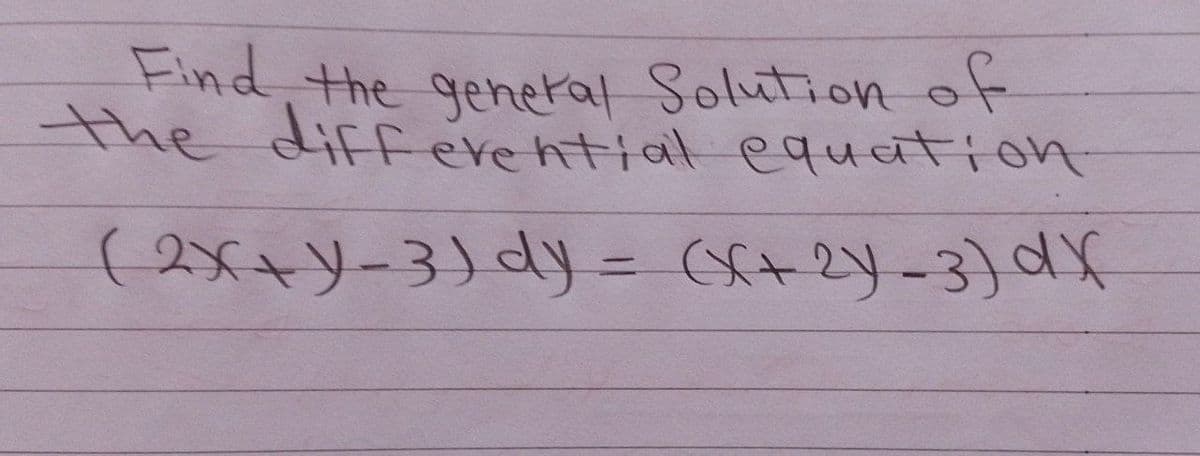 Find the general Solution of
the differential equation
(2x+y-3) dy = (x+2y-3) dx